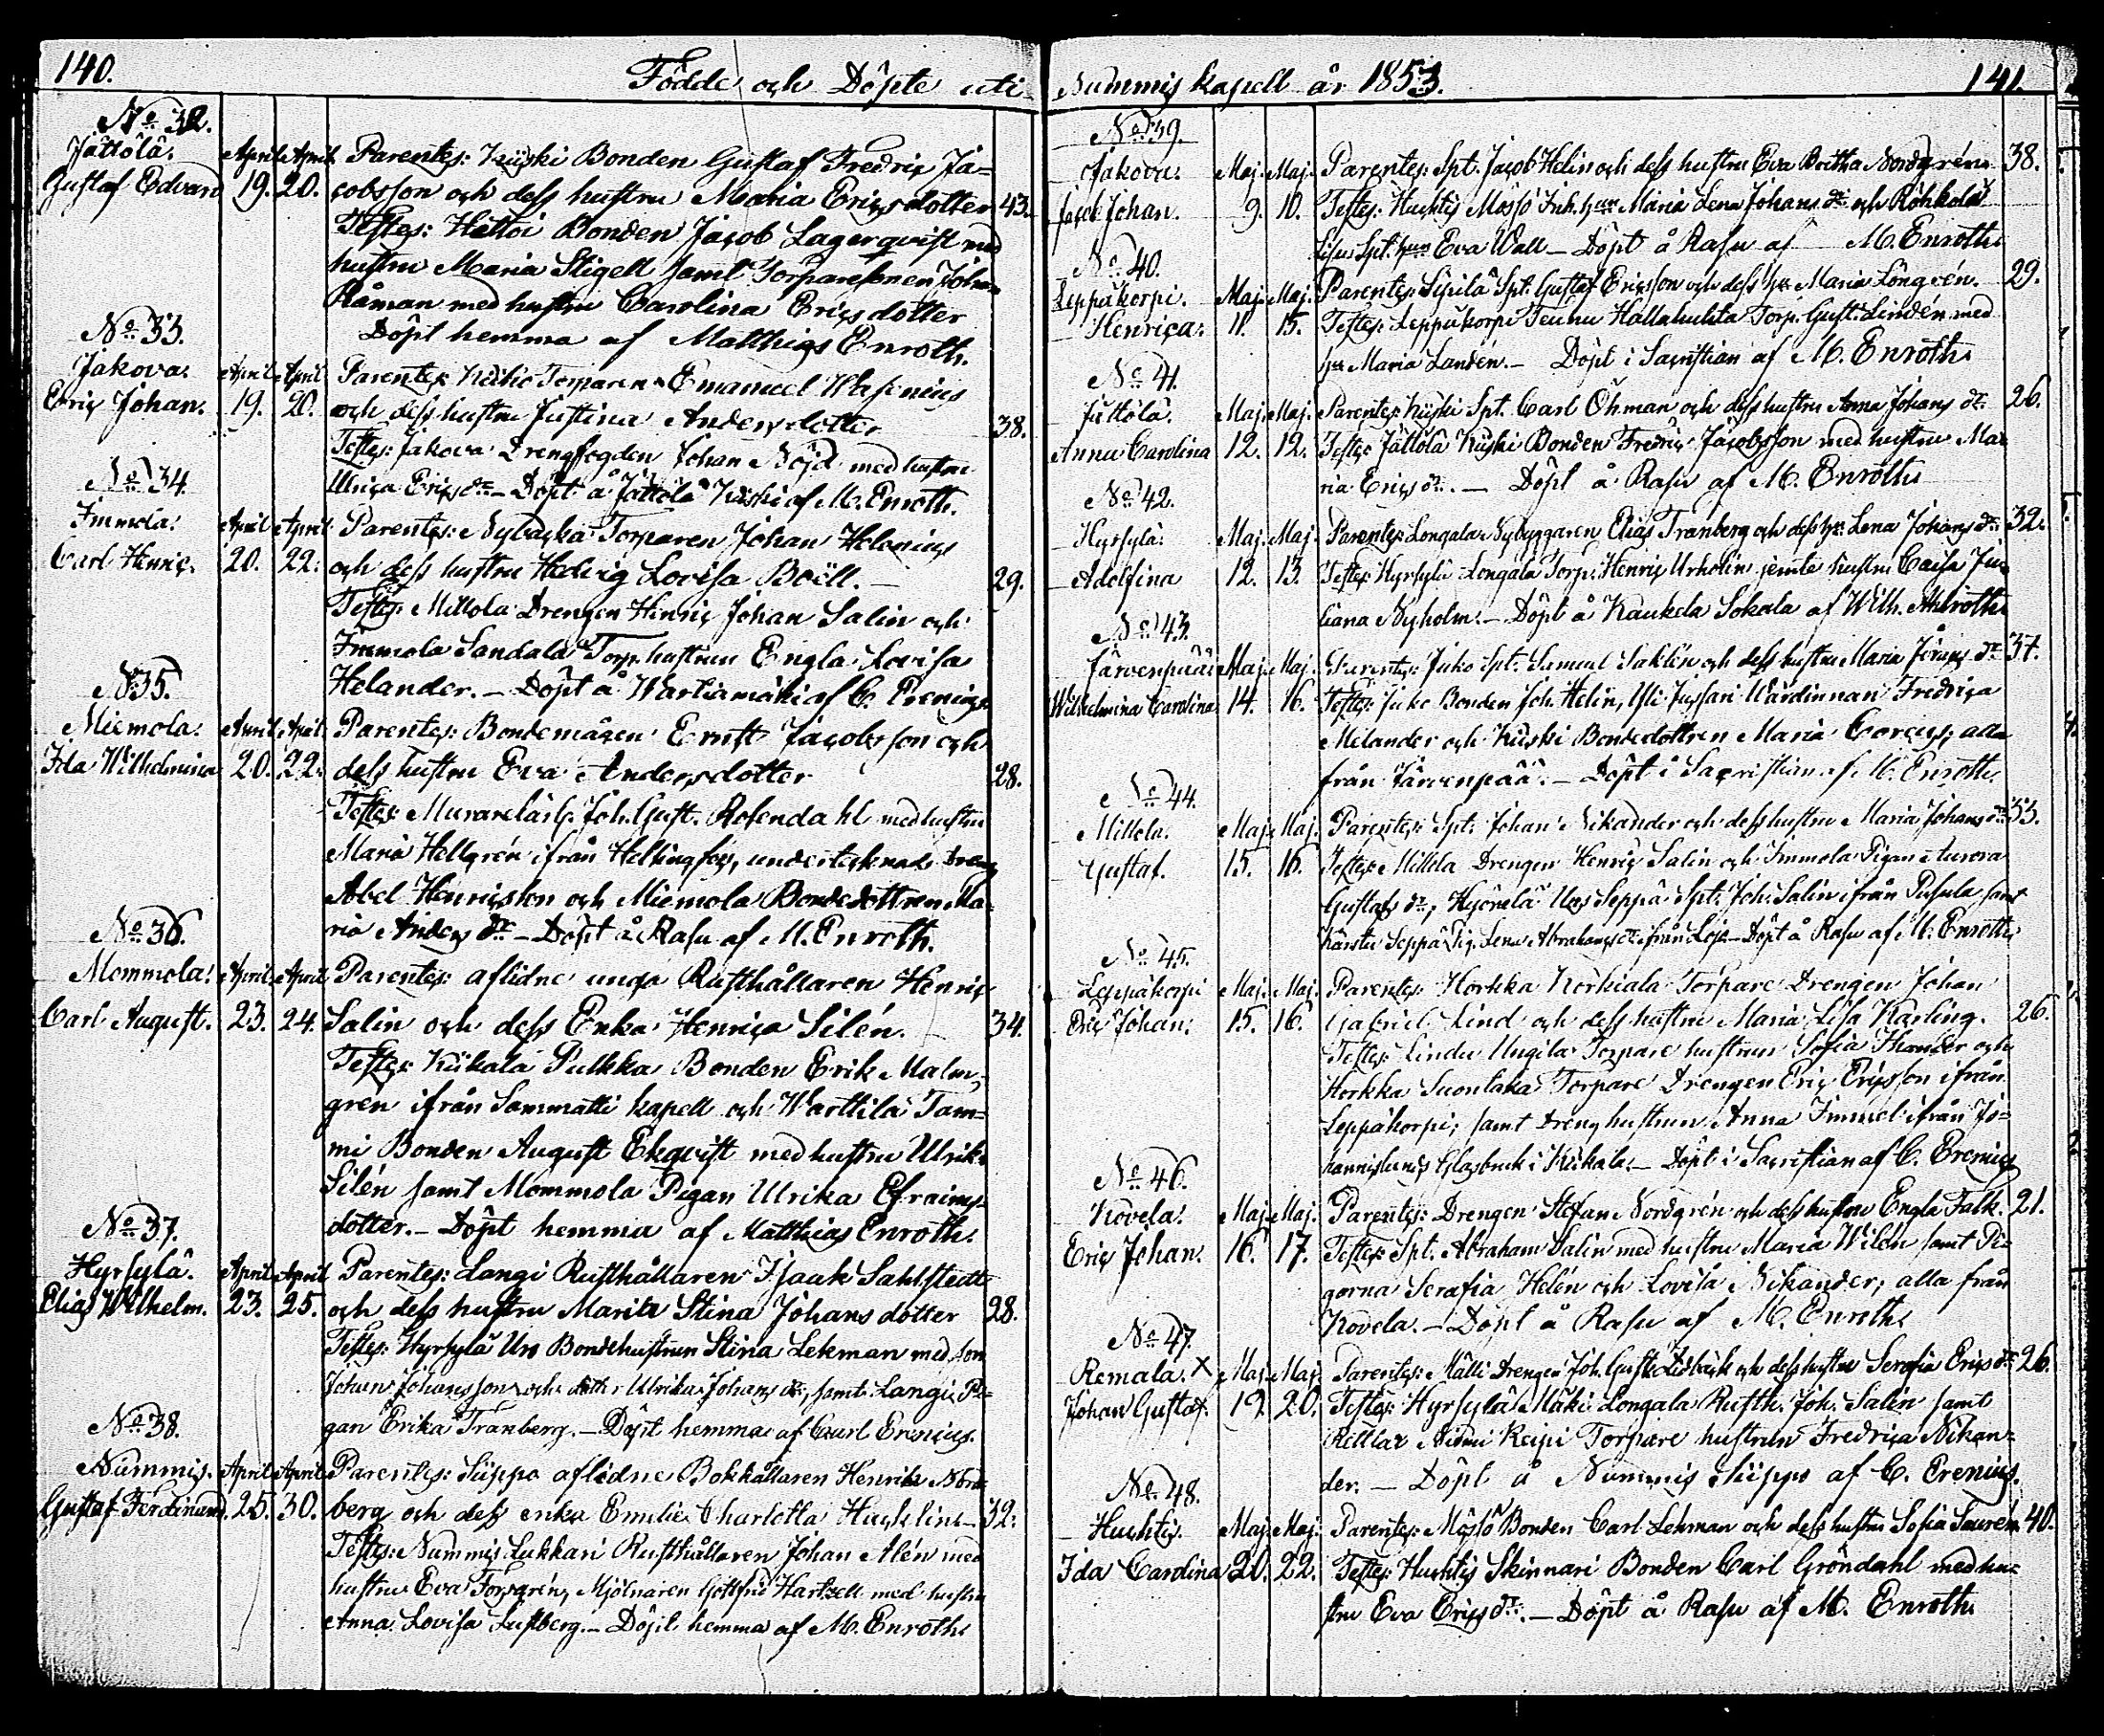 140.
Födde och Döpte uti Nummis kapell år 1853.
141.
No 32.
Jättölä. April April Parentes: Kiiski Bonden Gustaf Fredric Ja-
Gustaf Edvard 19. 20. cobsson och dess hustru Maria Ericsdotter 43.
Testes: Hättöi Bonden Jacob Lagerqvist med
hustru Maria Stigell samt Torparesonen Johan
Råman med hustru Carolina Ericsdotter
Döpt hemma af Matthias Enroth.
No 33.
Jakova. April April Parentes: Torparen Emanuel Wasenius
Eric Johan. 19. 20. och dess hustru Justina Andersdotter 38.
Testes: Jakova Drengfogden Johan Nöjd med hustru
Ulrica Ericsdr – Döpt å Jättölä Kiiski af M. Enroth.
No 34.
Immola. April April Parentes: Nybacka Torparen Johan Helenius
Carl Henric. 20. 22. och dess hustru Hedvig Lovisa Boëll. – 29.
Testes: Millola Drengen Henric Johan Salin och
Immola Sandala Torp. hustrun Engla Lovisa
Helander. – Döpt å Wartiamäki af C. Erenius.
No 35.
Miemola. April April Parentes: Bondemågen Ernst Jacobsson och
Ida Wilhelmina 20. 22. dess hustru Eva Andersdotter 28.
Testes: Murarelärl. Joh. Gust. Rosendahl med hustru
Maria Hellgrén ifrån Helsingfors, undertecknads Dreng
Abel Henricsson och Miemola Bondedottren Ma-
ria Anders dr – Döpt å Rasu af M. Enroth.
No 36.
Mommola. April April Parentes: aflidne unga Rusthållaren Henric
Carl August. 23. 24. Salin och dess Enka Henrica Silén. – 34.
Testes: Kiikala Pulkka Bonden Erik Malm-
gren ifrån Sammatti kapell och Warttila Tam-
mi Bonden August Ekqvist med hustru Ulrika
Silén samt Mommola Pigan Ulrika Efraims-
dotter. – Döpt hemma af Matthias Enroth.
No 37.
Hyrsylä. April April Parentes: Langi Rusthållaren Isaak Sahlstedt
Elias Wilhelm. 23. 25. och dess hustru Maria Stina Johans dotter 28.
Testes: Hyrsylä Uro Bondehustrun Stina Lekman med son
Johan Johansson och dotter Ulrika Johans dr, samt Langi Pi-
gan Erika Tranberg. – Döpt hemma af Carl Erenius.
No 38.
Nummis. April April Parentes: Siippo aflidne Bokhållaren Henrik Nord-
Gustaf Ferdinand. 25. 30. berg och dess enka Emilie Charlotta 32.
Testes: Nummis Lukkari Rusthållaren Johan Alén med
hustru Eva Forsgrén, Mjölnaren Gottfrid Hartzell med hustru
Anna Lovisa Lustberg. – Döpt hemma af M. Enroth.
No 39.
Jakova. Maj. Maj. Parentes: Spt. Jacob Helin och dess hustru Eva Britha Nordgrén. 38.
Jacob Johan. 9. 10. Testes: Huhtis Mösjö Inh. hun Maria Lena Johans dr och Röhkölä
Spt. hun Eva Wall – Döpt å Rasu af M. Enroth.
No 40.
Leppäkorpi. Maj. Maj. Parentes: Sipilä Spt. Gustaf Ericsson och dess hu Maria Löngrén. 29.
Henrica. 11. 15. Testes: Leppäkorpi Teunu Hallahuhta Torp. Gust. Lindén med
hu Maria Landén. – Döpt i Sacristian af M. Enroth.
No 41.
Jättölä. Maj. Maj. Parentes: Kiiski Spt. Carl Öhman och dess hustru Anna Johans dr. 26.
Anna Carolina 12. 12. Testes: Jättölä Kiiski Bonden Fredric Jacobsson med hustru Ma-
ria Erics dr. – Döpt å Rasu af M. Enroth
No 42.
Hyrsylä. Maj. Maj. Parentes: Longala Nybyggaren Elias Tranberg och dess hu Lena Johans dr. 32.
Adolfina 12. 13. Testes: Hyrsylä Longala Torp. Henric Urholin jemte hustru Caisa Ju-
liana Nyholm. – Döpt å Kaukela Sokala af Wilh. Ahlroth
No 43.
Järvenpää. Maj. Maj. Parentes: Juko Spt. Samuel Saklén och dess hustru Maria Jörans dr 37.
Wilhelmina Carolina 14. 16. Testes: Juko Bonden Joh. Helin, Yli Jussari Wärdinnan Fredrica
Melander och Kiiski Bondedottren Maria alla
från Järvenpää. – Döpt i Sacristian af M. Enroth.
No 44.
Millola. Maj. Maj. Parentes: Spt. Johan Nikander och dess hustru Maria Johans dr 33.
Gustaf. 15. 16. Testes: Millola Drengen Henric Salin och Immola Pigan Aurora
Gustafs dr, Hyönelä Uus Seppä Spt. Joh. Salin ifrån Pusula samt
Seppä Pig. Lena Abrahams dr ifrån Lojo – Döpt å Rasu af M. Enroth.
No 45.
Leppäkorpi Maj. Maj. Parentes: Horkka Korkiala Torpare Drengen Johan
Eric Johan. 15. 16. Gabriel Lind och dess hustru Maria Lisa Karling. 26.
Testes: Lindu Ungila Torpare hustrun Sofia Thander och
Horkka Suontaka Torpare Drengen Eric Ericsson ifrån
Leppäkorpi; samt Dreng hustrun Anna Immel ifrån Jo-
hannislunds Glasbruk i Kiikala. – Döpt i Sacristian af C. Erenius
No 46.
Kovela. Maj. Maj. Parentes: Drengen Stefan Nordgrén och dess hustru Engla Falk. 21.
Eric Johan. 16. 17. Testes: Spt. Abraham Salin med hustru Maria Wilén samt Pi-
gorna Serafia Helén och Lovisa Nikander; alla från
Kovela. – Döpt å Rasu af M. Enroth.
No 47.
Remala. X Maj. Maj. Parentes: Mälli Drengen Joh. Gust. och dess hustru Serafia Erics dr 26.
Johan Gustaf. 19. 20. Testes: Hyrsylä Mäki Longala Rusth. Joh. Salin samt
Torpare hustrun Fredrica Nikan-
der. – Döpt å Nummis Siippo af C. Erenius.
No 48.
Huhtis. Maj. Maj. Parentes: Mösjö Bonden Carl Lehman och dess hustru Sofia Saurén 40.
Ida Carolina 20. 22. Testes: Huhtis Skinnari Bonden Carl Gröndahl med hu-
stru Eva Erics dr. – Döpt å Rasu af M. Enroth